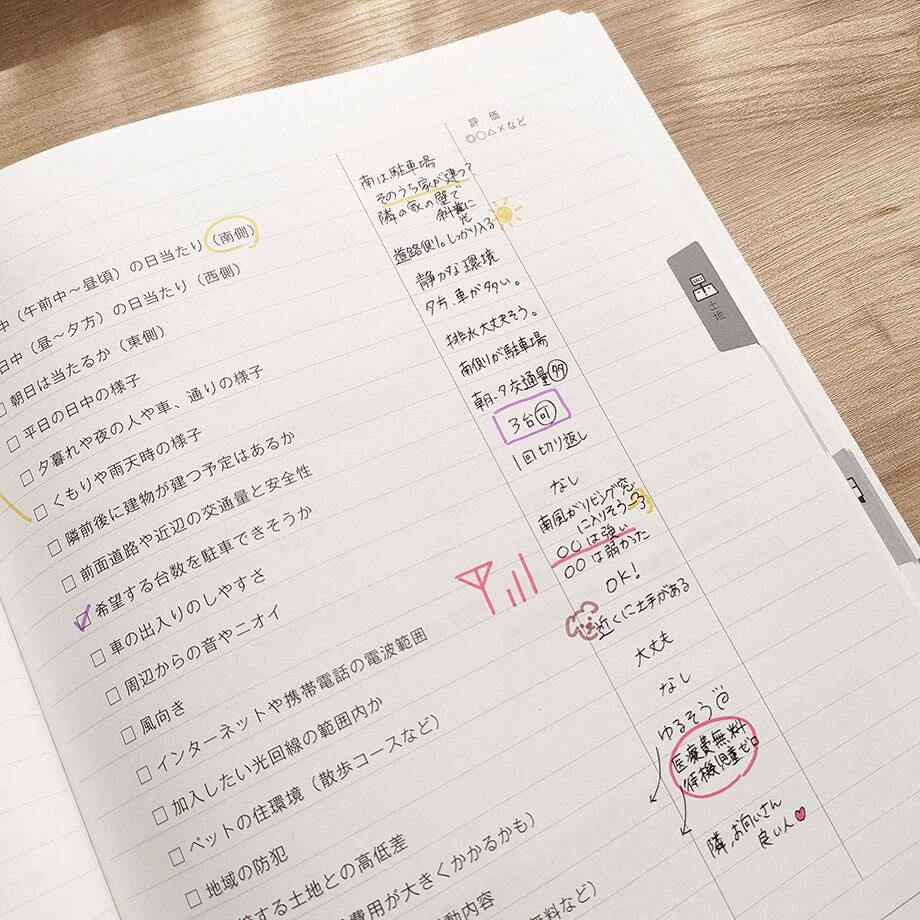 評 価
◎○△×など
南は駐車場
そのうち家が建つ?
隣の家の壁で
斜めに
光
道路側り。しっかり入る
静かな環境
夕方、車が多い。
排水大丈夫そう。
南側が駐車場
朝-夕交通量多
3台可
1回切り返し
なし
南風がリビング窓
に入りそう
○○は強い
○○は弱かった
OK!
近くに土手がある
大丈夫
なし
ゆるそう
医療費無料
待機児童ゼロ
隣、お向いさん
良い人
中(午前中~昼頃)の日当たり(南側)
日中(昼~夕方)の日当たり(西側)
朝日は当たるか(東側)
平日の日中の様子
夕暮れや夜の人や車、通りの様子
くもりや雨天時の様子
隣前後に建物が建つ予定はあるか
前面道路や近辺の交通量と安全性
希望する台数を駐車できそうか
車の出入りのしやすさ
周辺からの音やニオイ
風向き
インターネットや携帯電話の電波範囲
加入したい光回線の範囲内か
ペットの住環境(散歩コースなど)
地域の防犯
接する土地との高低差
費用が大きくかかるかも)
動内容
無料など)
土地